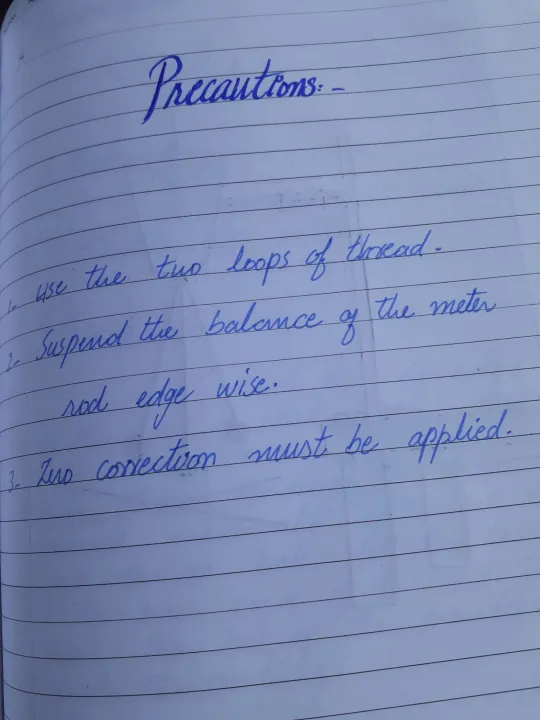 Precautions:-
1. use the two loops of thread.
2. Suspend the balance of the meter
rod edge wise.
3. Zero correction must be applied.